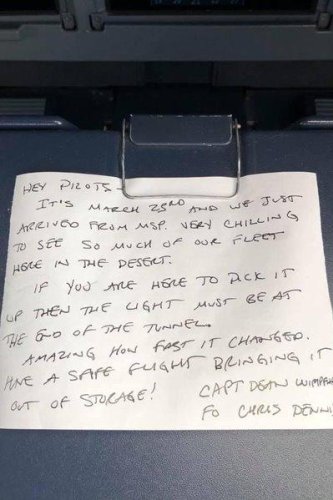 HEY PILOTS-
IT'S MARCH 23RD AND WE JUST
ARRIVED FROM MSP. VERY CHILLING
TO SEE SO MUCH OF OUR FLEET
HERE IN THE DESERT.
IF YOU ARE HERE TO PICK IT
UP THEN THE LIGHT MUST BE AT
THE END OF THE TUNNEL.
AMAZING HOW FAST IT CHANGED.
HAVE A SAFE FLIGHT BRINGING IT
OUT OF STORAGE!
CAPT DEAN
FO CHRIS